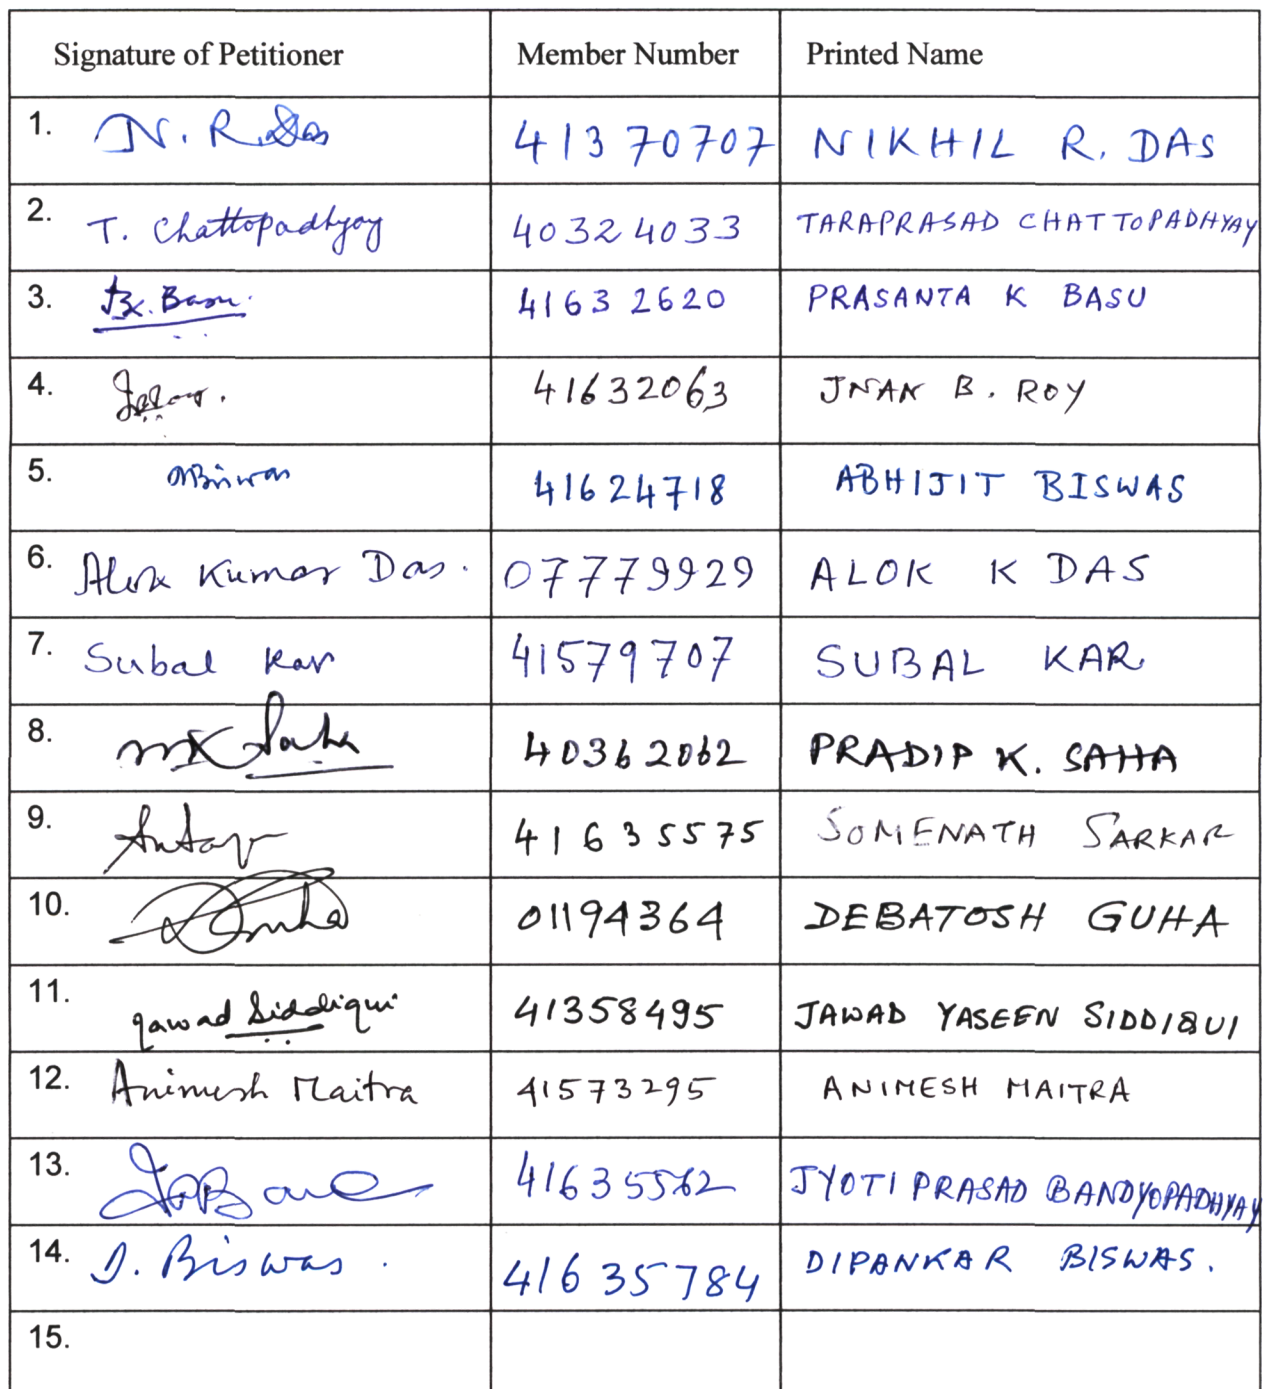 Signature of Petitioner Member Number Printed Name
1. N. R. Das 41370707 NIKHIL R. DAS
2. T. Chattopadhyay 40324033 TARAPRASAD CHATTOPADHYAY
3. Basu. 41632620 PRASANTA K BASU
4. 41632063 JNAN B. ROY
5. ABiswas 41624718 ABHIJIT BISWAS
6. Alok Kumar Das. 07779929 ALOK K DAS
7. Subal Kar 41579707 SUBAL KAR
8. Saha 40362062 PRADIP K. SAHA
9. 41635575 SOMENATH SARKAR
10. Guha 01194364 DEBATOSH GUHA
11. Jawad Siddiqui 41358495 JAWAD YASEEN SIDDIQUI
12. Animesh Maitra 41573295 ANIMESH MAITRA
13. 41635562 JYOTI PRASAD BANDYOPADHYAY
14. D. Biswas. 41635784 DIPANKAR BISWAS.
15.